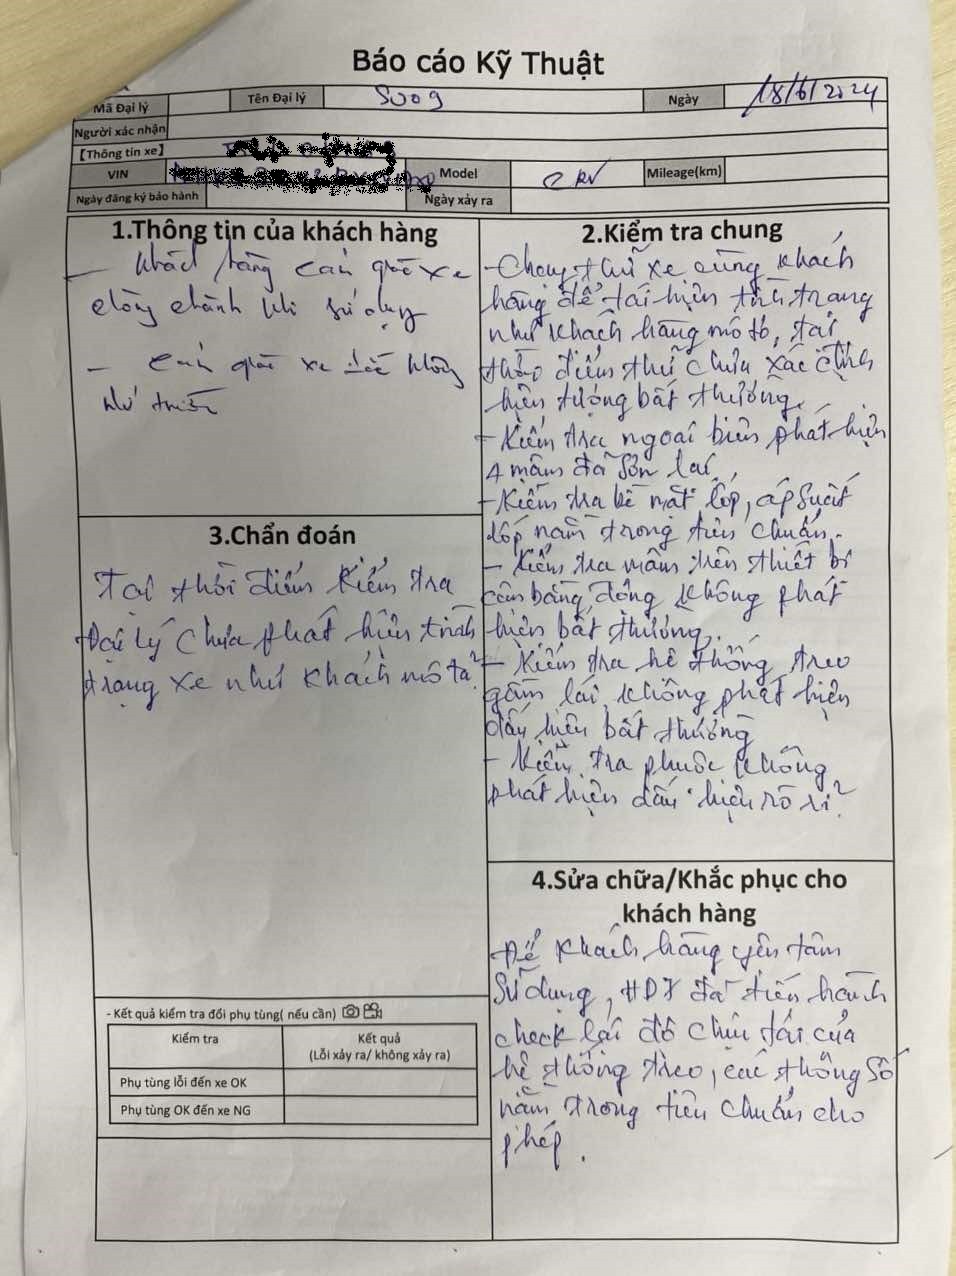 Báo cáo Kỹ Thuật
Mã Đại lý Tên Đại lý S009 Ngày 18/6/2024
Người xác nhận
【Thông tin xe】
VIN Model CRV Mileage(km)
Ngày đăng ký bảo hành Ngày xảy ra
1.Thông tin của khách hàng
- Khách hàng cảm giác xe
chòng chành khi sử dụng
- Cảm giác xe lái không
như trước
2.Kiểm tra chung
- Chạy thử xe cùng khách
hàng để tái hiện tình trạng
như khách hàng mô tả, tại
thời điểm thử chưa xác định
hiện tượng bất thường.
- Kiểm tra ngoại biên phát hiện
4 mâm đã sơn lại
- Kiểm tra bề mặt lốp, áp suất
lốp nằm trong tiêu chuẩn.
- Kiểm tra mâm trên thiết bị
cân bằng động không phát
hiện bất thường.
- Kiểm tra hệ thống treo
gầm lái không phát hiện
dấu hiệu bất thường
- Kiểm tra phuộc không
phát hiện dấu hiệu rò rỉ
3.Chẩn đoán
Tại thời điểm kiểm tra
Đại lý chưa phát hiện tình
trạng xe như khách mô tả
- Kết quả kiểm tra đổi phụ tùng( nếu cần)
Kiểm tra Kết quả
(Lỗi xảy ra/ không xảy ra)
Phụ tùng lỗi đến xe OK
Phụ tùng OK đến xe NG
4.Sửa chữa/Khắc phục cho
khách hàng
Để khách hàng yên tâm
sử dụng, đã tiến hành
check lại độ chịu tải của
hệ thống treo, các thông số
nằm trong tiêu chuẩn cho
phép.